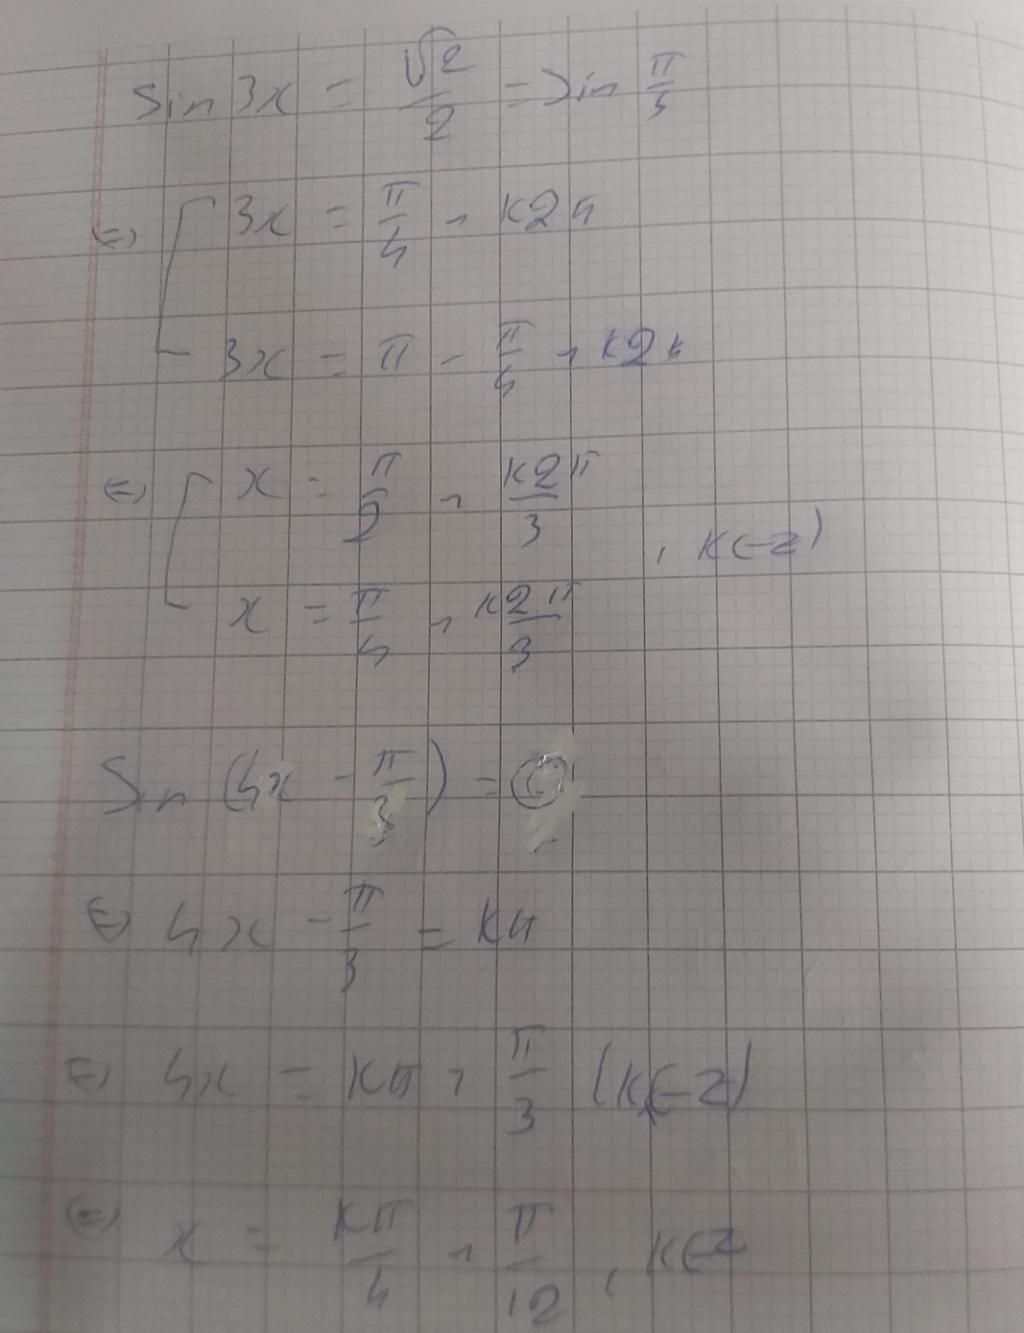 Sin 3x = √2/2 = Sin π/4
⇔ [ 3x = π/4 + k2π
3x = π - π/4 + k2π
⇔ [ x = π/2 + k2π/3
, k∈Z)
x = π/4 + k2π/3
Sin (4x - π/3) = 0
⇔ 4x - π/3 = kπ
⇔ 4x = kπ + π/3 (k∈Z)
⇔ x = kπ/4 + π/12, k∈Z